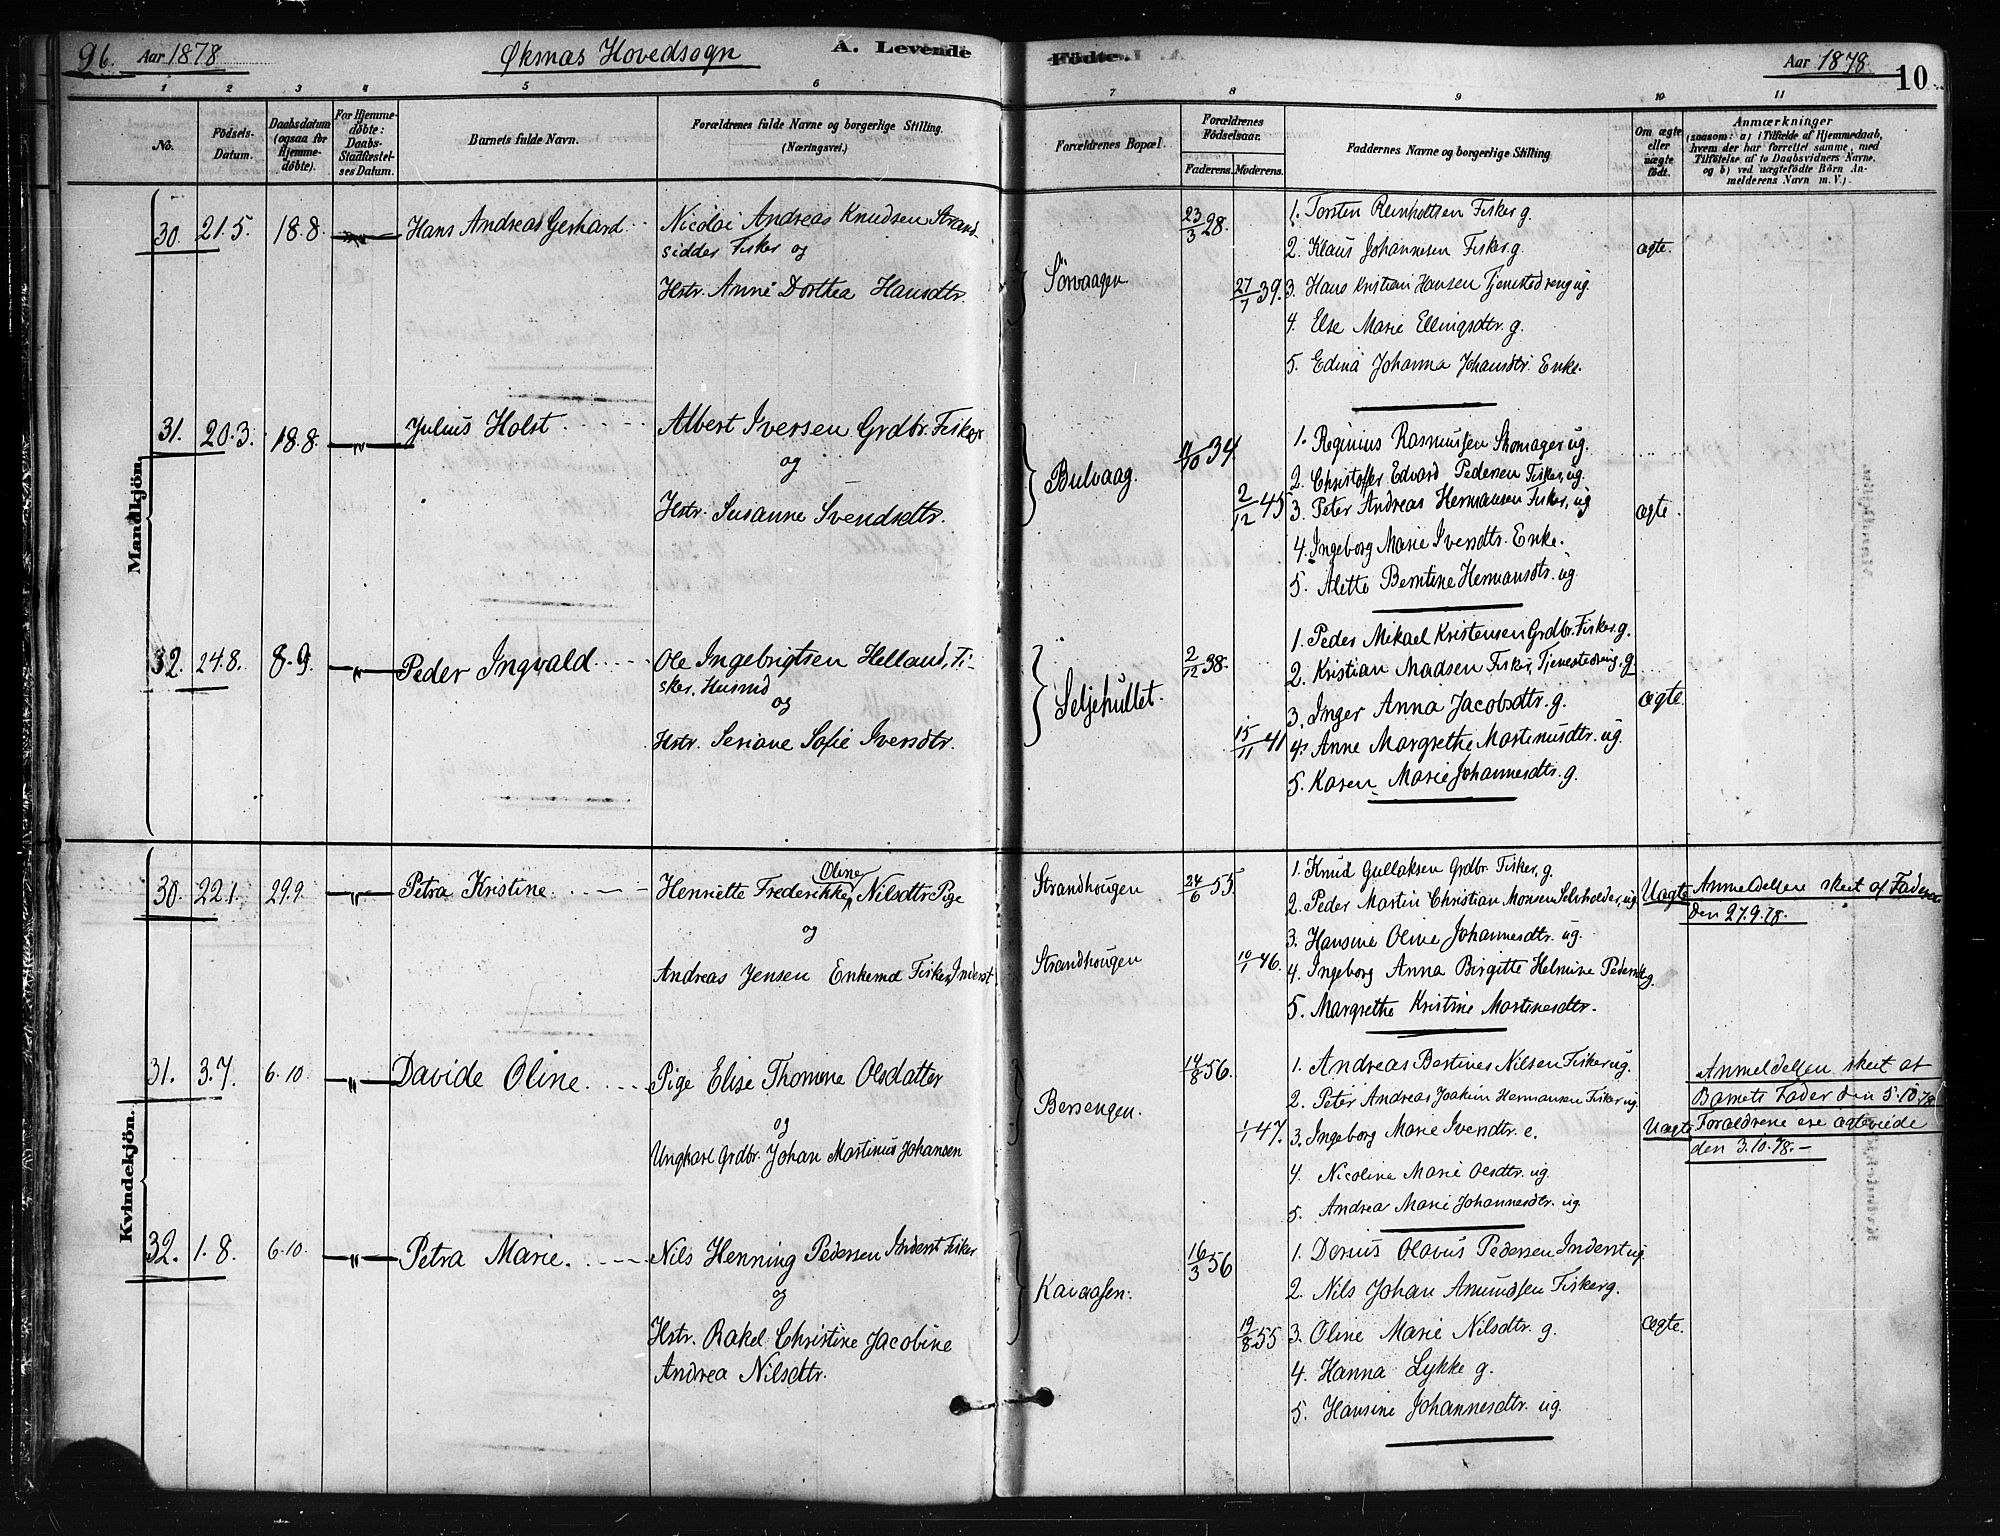 96. Aar 1878 Øksnæs Hovedsogn A. Levende
Fødte. Aar 1878. 10
1 2 3 4 5 6 7 8 9 10 11
No. Fødsels-Datum. Daabsdatum (ogsaa for Hjemme-døbte). For Hjemme-døbte: Daabs-Stadfæstel-ses Datum. Barnets fulde Navn. Forældrenes fulde Navne og borgerlige Stilling. (Næringsvei.) Forældrenes Bopæl. Forældrenes Fødselsaar. Faderens. Moderens. Faddernes Navne og borgerlige Stilling Om ægte eller uægte født. Anmærkninger
(saasom: a) i Tilfælde af Hjemmedaab,
hvem der har forrettet samme, med
Tilføielse af to Daabsvidners Navne,
og b) ved uægtefødte Børn An-
melderens Navn m. V.).
Mandkjön.
30. 21.5. 18.8. — " — Hans Andreas Gerhard Nicolai Andreas Knudsen Strand-
sidder Fisker og
Hstr. Anne Dorthea Hansdtr.
Sörvaagen
23/3 28.
27/7 39.
1. Torsten Reinholtsen Fisker g.
2. Klaus Johannesen Fisker g.
3. Hans Kristian Hansen Tjenstedreng ug.
4. Else Marie Ellingsdtr. g.
5. Edina Johanna Johansdtr. Enke.
ægte.
31. 20.3. 18.8. — " — Julius Holst Albert Iversen Grdbr. Fisker
og
Hstr. Susanne Svendsdtr.
Bulvaag.
11/10 34
2/12 45
1. Reginius Rasmussen Skomager ug.
2. Christoffer Edvard Pedersen Fisker, ug.
3. Peter Andreas Hermansen Fisker, ug
4. Ingeborg Marie Iversdtr. Enke.
5. Alette Berntine Hermansdtr. ug.
ægte.
32. 24.8. 8.9. — " — Peder Ingvald Ole Ingebrigtsen Helland, Fi-
sker, Husmd
og
Hstr. Seriane Sofie Iversdtr.
Seljehullet.
2/12 38.
15/11 41
1. Peder Mikael Kristensen Grdbr. Fisker g.
2. Kristian Madsen Fisker, Tjenestedreng, g
3. Inger Anna Jacobsdtr. g.
4. Anne Margrethe Martinusdtr. ug.
5. Karen Marie Johannesdtr. g.
ægte.
Kvindekjön.
30. 22.1. 29.9. — " — Petra Kristine. Henriette Frederikke Oline Nilsdtr. Pige
og
Andreas Jensen Enkemd Fisker, Inderst
Strandhougen
Strandhougen
24/6 55
10/1 46.
1. Knud Gullaksen Grdbr. Fisker, g.
2. Peder Martin Christian Monsen Selvholder, ug
3. Hansine Oline Johannesdtr. ug.
4. Ingeborg Anna Birgitte Helmine Pedersdtr g.
5. Margrethe Kristine Martinesdtr.
Uægte Anmeldelsen skeet af Faderen
den 27.9.78.
31. 3.7. 6.10. — " — Davide Oline. Pige Elise Thomine Olsdatter
og
Ungkarl Grdbr. Johan Martinus Johansen
Bersengen.
14/8 56.
1/1 47.
1. Andreas Bertines Nilsen Fisker ug.
2. Peter Andreas Joakim Hermansen Fisker ug.
3. Ingeborg Marie Iversdtr. e.
4. Nicoline Marie Olsdtr. ug.
5. Andrea Marie Johannesdtr. ug.
Uægte Anmeldelsen skeet af
Barnets Fader den 5.10.78
Forældrene ere ægteviede
den 3.10.78. —
32. 1.8. 6.10. — " — Petra Marie. Nils Henning Pedersen Inderst Fisker
og
Hstr. Rakel Christine Jacobine
Andrea Nilsdtr.
16/3 56
19/8 55
1. Dorius Olavus Pedersen Inderst ug
2. Nils Johan Amundsen Fisker g.
3. Oline Marie Nilsdtr. g.
4. Hanna Lykke g.
5. Hansine Johannesdtr. ug.
ægte.